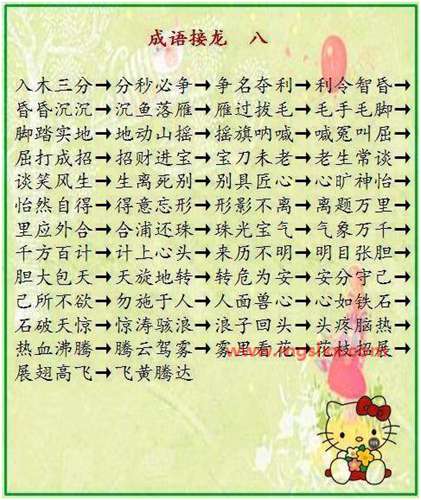 成语接龙 八
入木三分→分秒必争→争名夺利→利令智昏→
昏昏沉沉→沉鱼落雁→雁过拔毛→毛手毛脚→
脚踏实地→地动山摇→摇旗呐喊→喊冤叫屈→
屈打成招→招财进宝→宝刀未老→老生常谈→
谈笑风生→生离死别→别具匠心→心旷神怡→
怡然自得→得意忘形→形影不离→离题万里→
里应外合→合浦还珠→珠光宝气→气象万千→
千方百计→计上心头→来历不明→明目张胆→
胆大包天→天旋地转→转危为安→安分守己→
己所不欲→勿施于人→人面兽心→心如铁石→
石破天惊→惊涛骇浪→浪子回头→头疼脑热→
热血沸腾→腾云驾雾→雾里看花→花枝招展→
展翅高飞→飞黄腾达